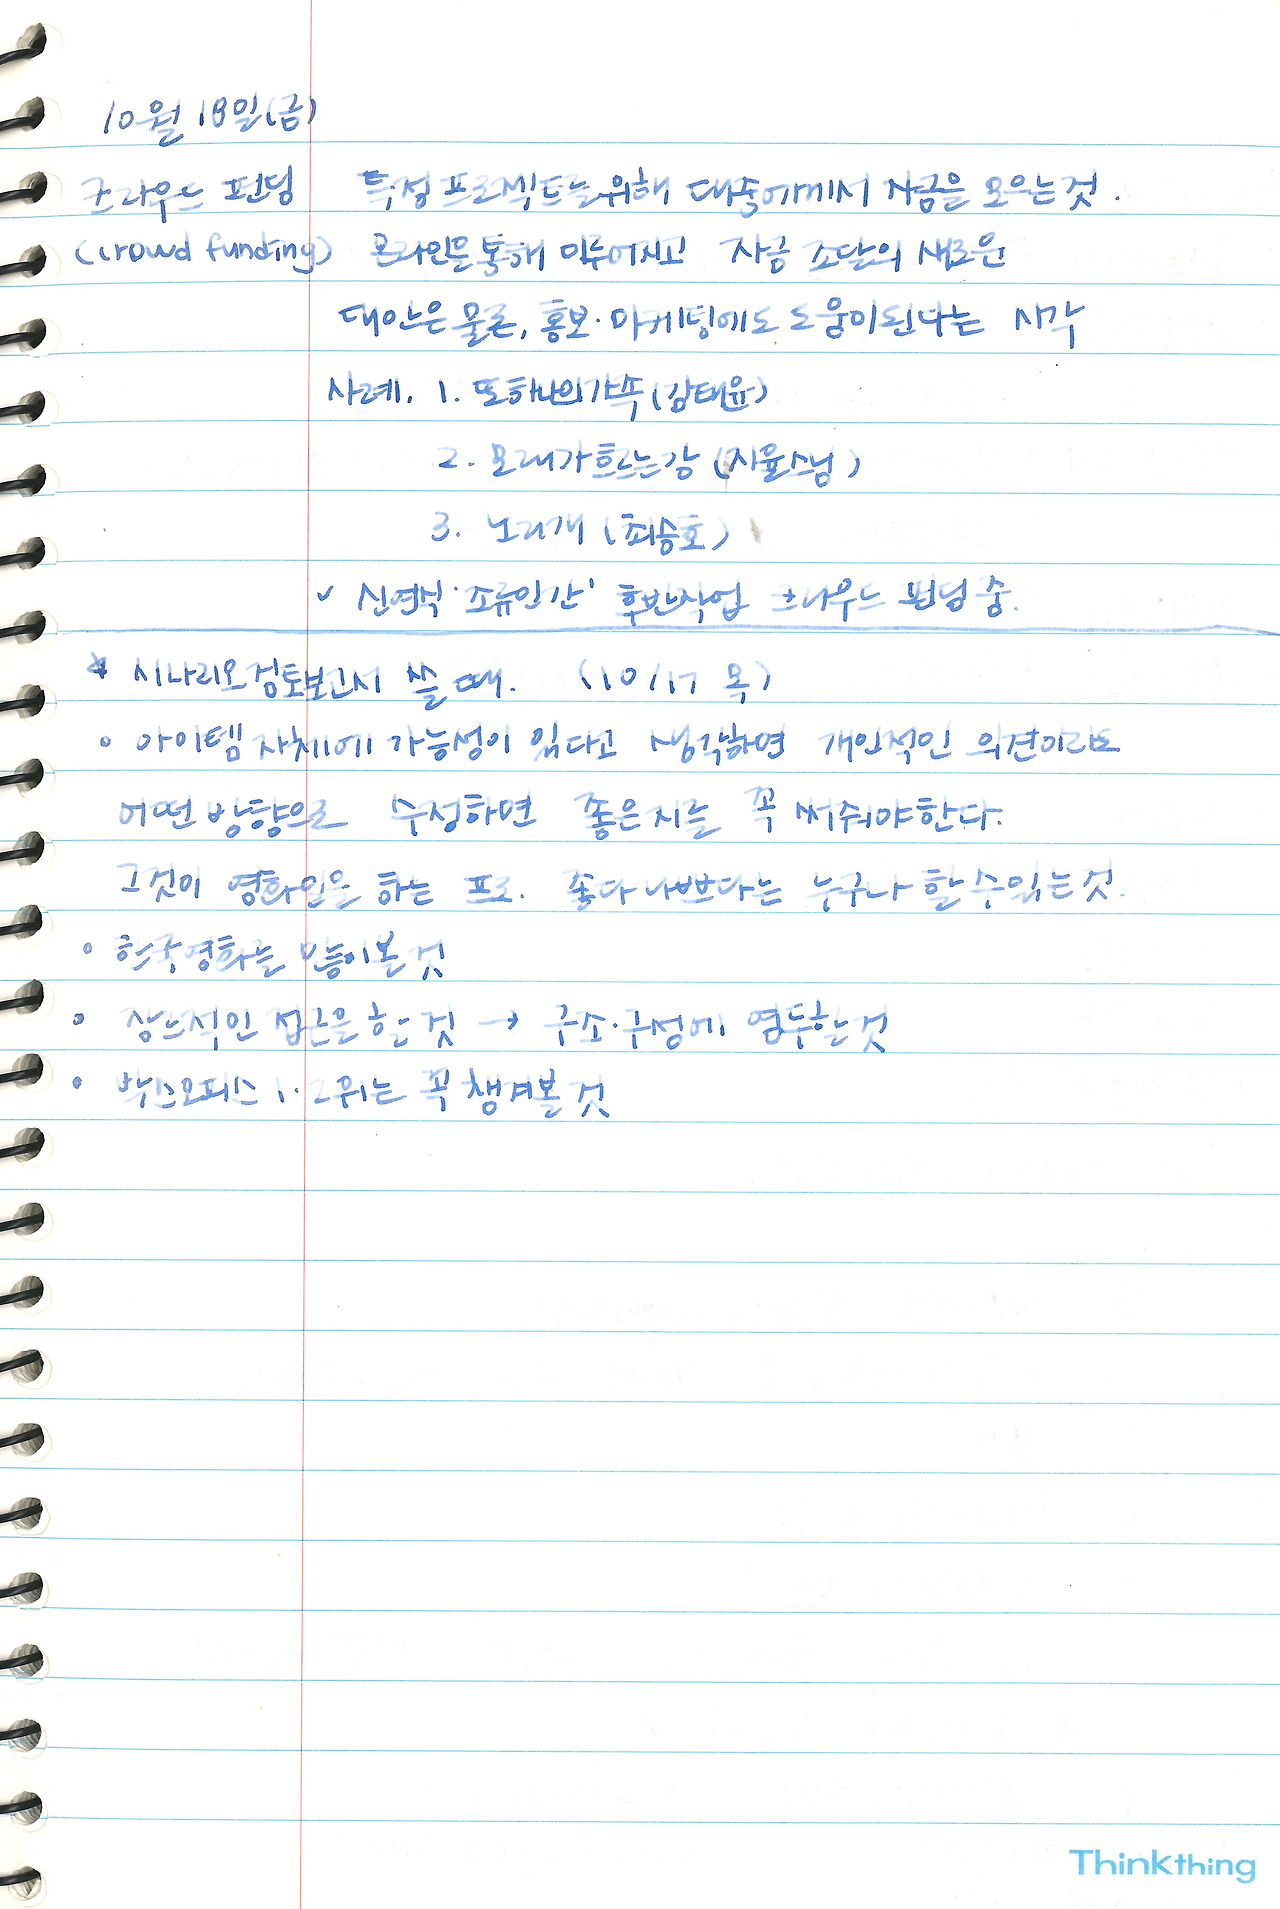 10월 18일(금)
크라우드 펀딩 특정 프로젝트를 위해 대중에게서 자금을 모으는 것.
(crowd funding) 온라인을 통해 이루어지고 자금 조달의 새로운
대안은 물론, 홍보·마케팅에도 도움이 된다는 시각
사례. 1. 또하나의 가족 (김태윤)
2. 모래가 흐르는 강 (지율스님)
3. 노리개 (최승호)
✓ 신연식 '조류인간' 후반작업 크라우드 펀딩 중.
* 시나리오 검토보고서 쓸 때. (10/17 목)
• 아이템 자체에 가능성이 있다고 생각하면 개인적인 의견이라도
어떤 방향으로 수정하면 좋은지를 꼭 써줘야한다.
그것이 영화일을 하는 프로. 좋다 나쁘다는 누구나 할 수 있는 것.
• 한국영화를 많이 볼 것
• 장르적인 접근을 할 것 → 구조·구성에 염두하는 것
• 박스오피스 1·2위는 꼭 챙겨볼 것
Thinkthing